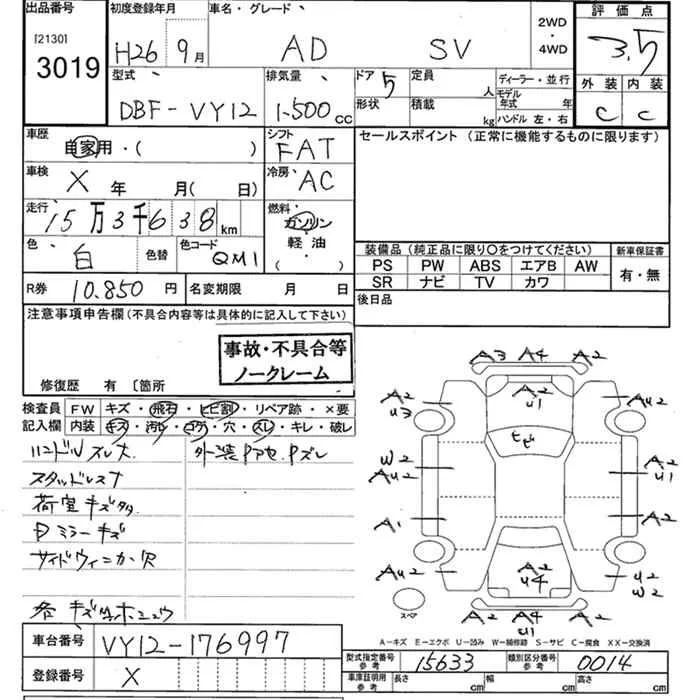 出品番号
[2130]
3019
初度登録年月
H26 9月
車名・グレード
AD SV
2WD
・
4WD
評価点
3.5
外装 内装
C C
型式
DBF-VY12
排気量
1.500cc
ドア 5
形状
定員
人
積載
kg
ディーラー・並行
モデル
年式 年
ハンドル 左・右
車歴
自家用・( )
シフト
FAT
セールスポイント (正常に機能するものに限ります)
車検
X 年 月( 日)
冷房
AC
走行
15万3千638km
燃料
ガソリン
・
軽油
・
( )
色
白
色替
色コード
QM1
装備品 (純正品に限り○をつけてください)
PS PW ABS エアB AW
SR ナビ TV カワ
新車保証書
有・無
R券 10.850円
名変期限 月 日
後日品
注意事項申告欄(不具合内容等は具体的に記入して下さい)
事故・不具合等
ノークレーム
修復歴 有 〔箇所
検査員
記入欄
FW キズ・飛石・ヒビ割・リペア跡・×要
内装 キズ・汚れ・コゲ・穴・スレ・キレ・破レ
ハンドルスレ大
外装Pアセ.Pズレ
スタッドレス
荷室キズ多
ミラーキズ
サイドウィンカー穴
各キズ
A3 A4 A2
A2 U3
A2 U1
AU2
ヒビ
W2 AU2
A2 U1
A1
A2
AU2
A2 U4
U2 W2
スペア
A2 A4 U1 A2
A－キズ E－エクボ U－凹み W－補修跡 S－サビ C－腐食 XX－交換済
車台番号
VY12-176997
登録番号
X
型式指定番号
参考
15633
類別区分番号
参考
0014
車庫証明用
参考
長さ cm
幅 cm
高さ cm